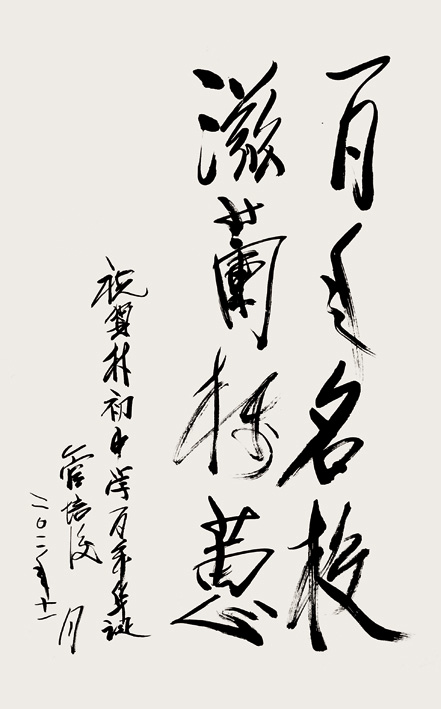 百年名校
滋蘭樹蕙
祝賀朴初中学百年华诞
管培俊
二〇二二年十一月